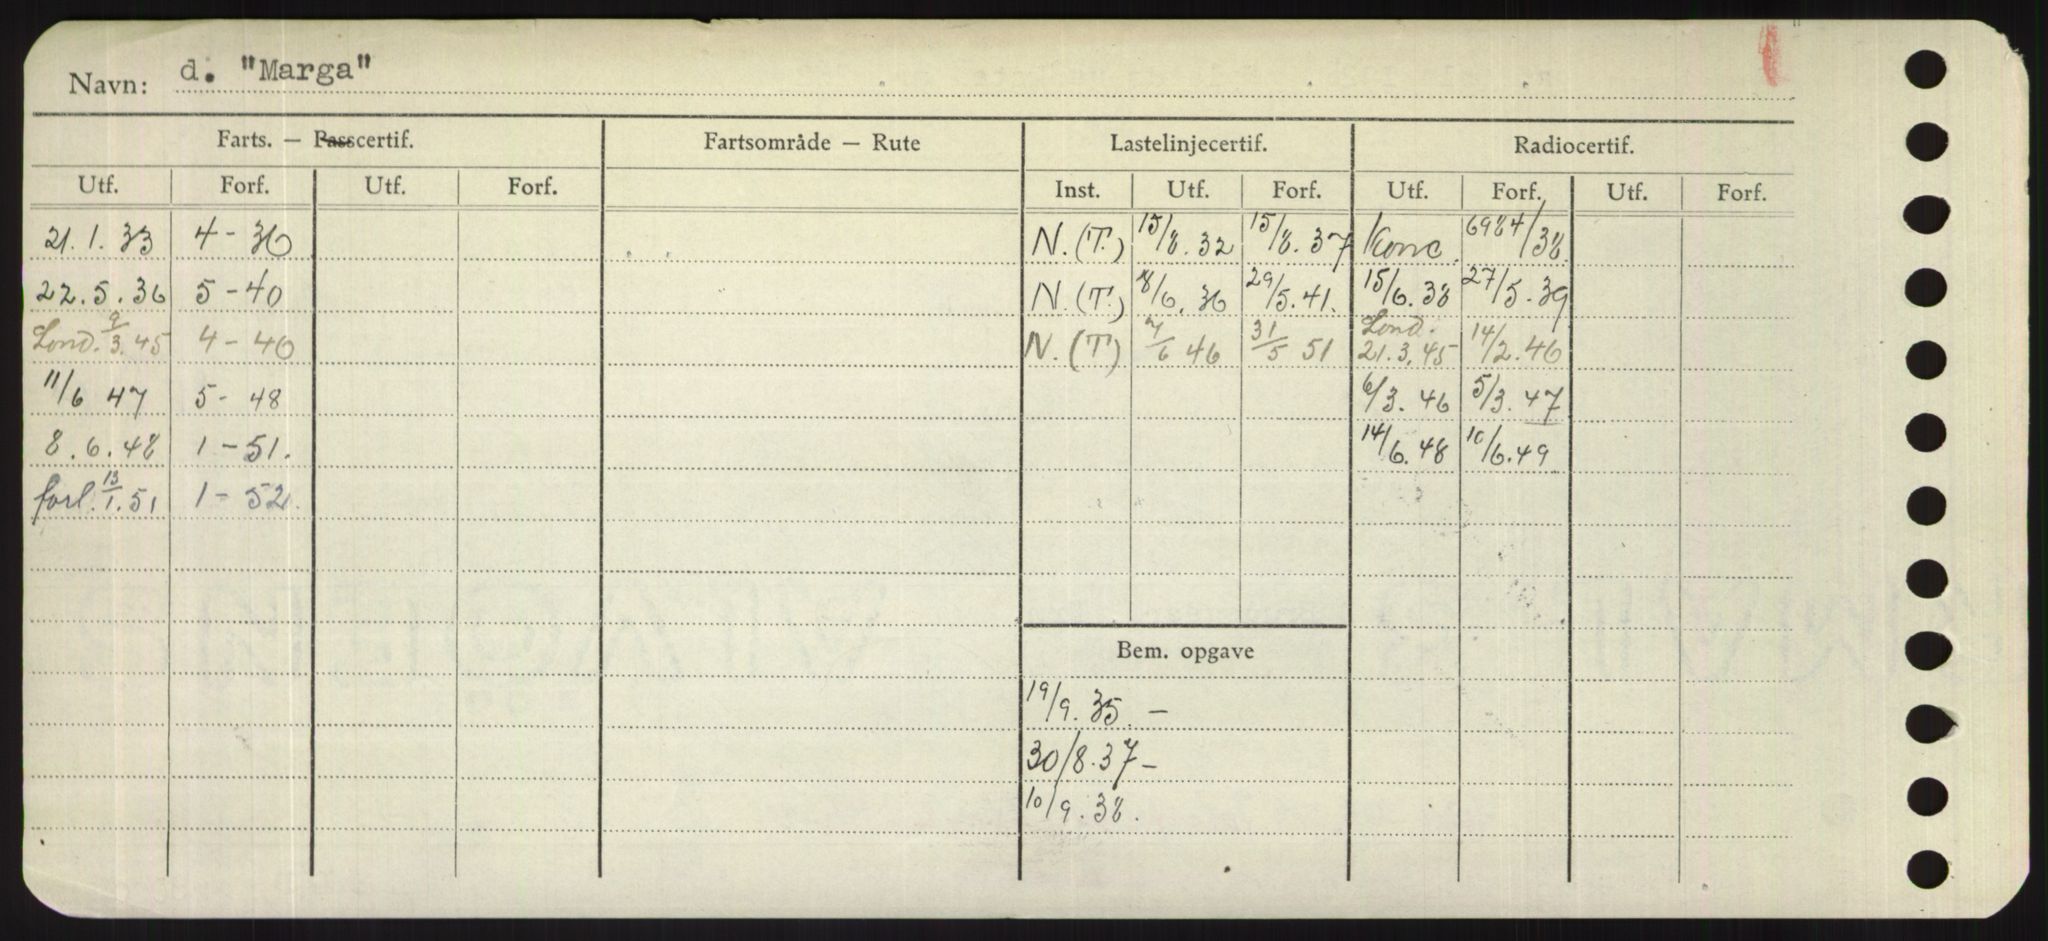 Navn: d. "Marga"
Farts. — Passcertif. Fartsområde — Rute Lastelinjecertif. Radiocertif.
Utf. Forf. Utf. Forf. Inst. Utf. Forf. Utf. Forf. Utf. Forf.
21.1.33 4-36 N.(T.) 15/8.32 15/8.37 Konc. 6984/38.
22.5.36 5-40 N.(T.) 8/6.36 29/5.41. 15/6.38 27/5.39
Lond. 9/3.45 4-46 N.(T) 7/6 46 31/5 51 Lond. 21.3.45 14/2.46
11/6 47 5-48 6/3.46 5/3.47
8.6.48 1-51. 14/6.48 10/6.49
forl. 13/1.51 1-52.
Bem. opgave
19/9.35.—
30/8.37—
10/9.38.